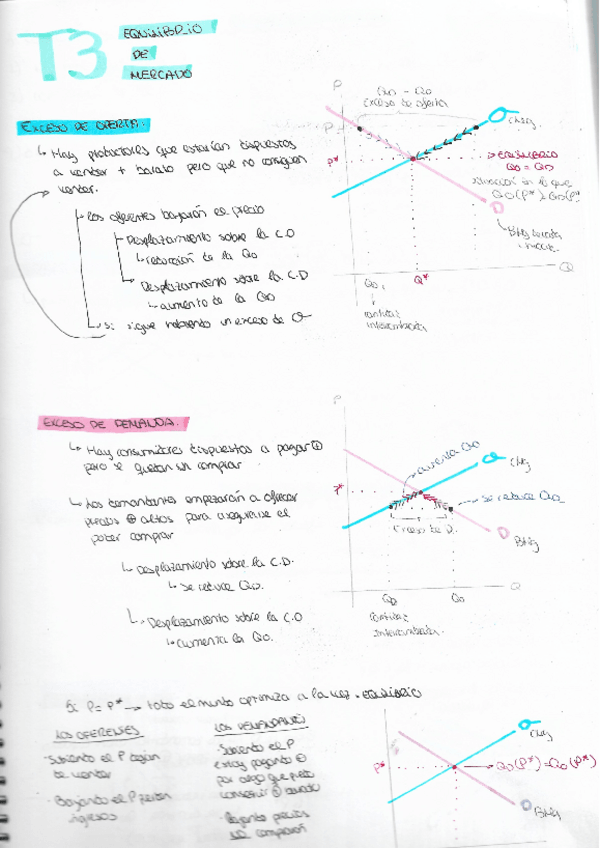 T3 EQUILIBRIO
DE
MERCADO
EXCESO DE OFERTA.
Hay productores que estarían dispuestos
a vender + barato pero que no consiguen
vender.
Los oferentes bajarán el precio
Desplazamiento sobre la C.O
reducción de la Qo
Desplazamiento sobre la C.D
aumento de la QD
Si sigue habiendo un exceso de O
P
QO - QD
exceso de oferta
O
P*
EQUILIBRIO
QO = QD
situación en la que
D
Q
Q*
cantidad
intercambiada
EXCESO DE DEMANDA.
Hay consumidores dispuestos a pagar +
pero se quedan sin comprar
Los demandantes empezarán a ofrecer
precios + altos para asegurarse el
poder comprar
Desplazamiento sobre la C.D.
Se reduce QD.
Desplazamiento sobre la C.O
aumenta la QO.
P
aumenta QO
O
P*
se reduce QD
Exceso de D.
D
Q
QO
QD
cantidad
intercambiada
Si P = P* → todo el mundo optimiza a la vez = EQUILIBRIO
LOS OFERENTES
Subiendo el P dejan
de vender
Bajando el P
ingresos
LOS DEMANDANTES
Subiendo el P
pagando +
por algo que
conseguir + barato
Bajando precios
no comprarán
O
P*
QO(P*) = QD(P*)
D